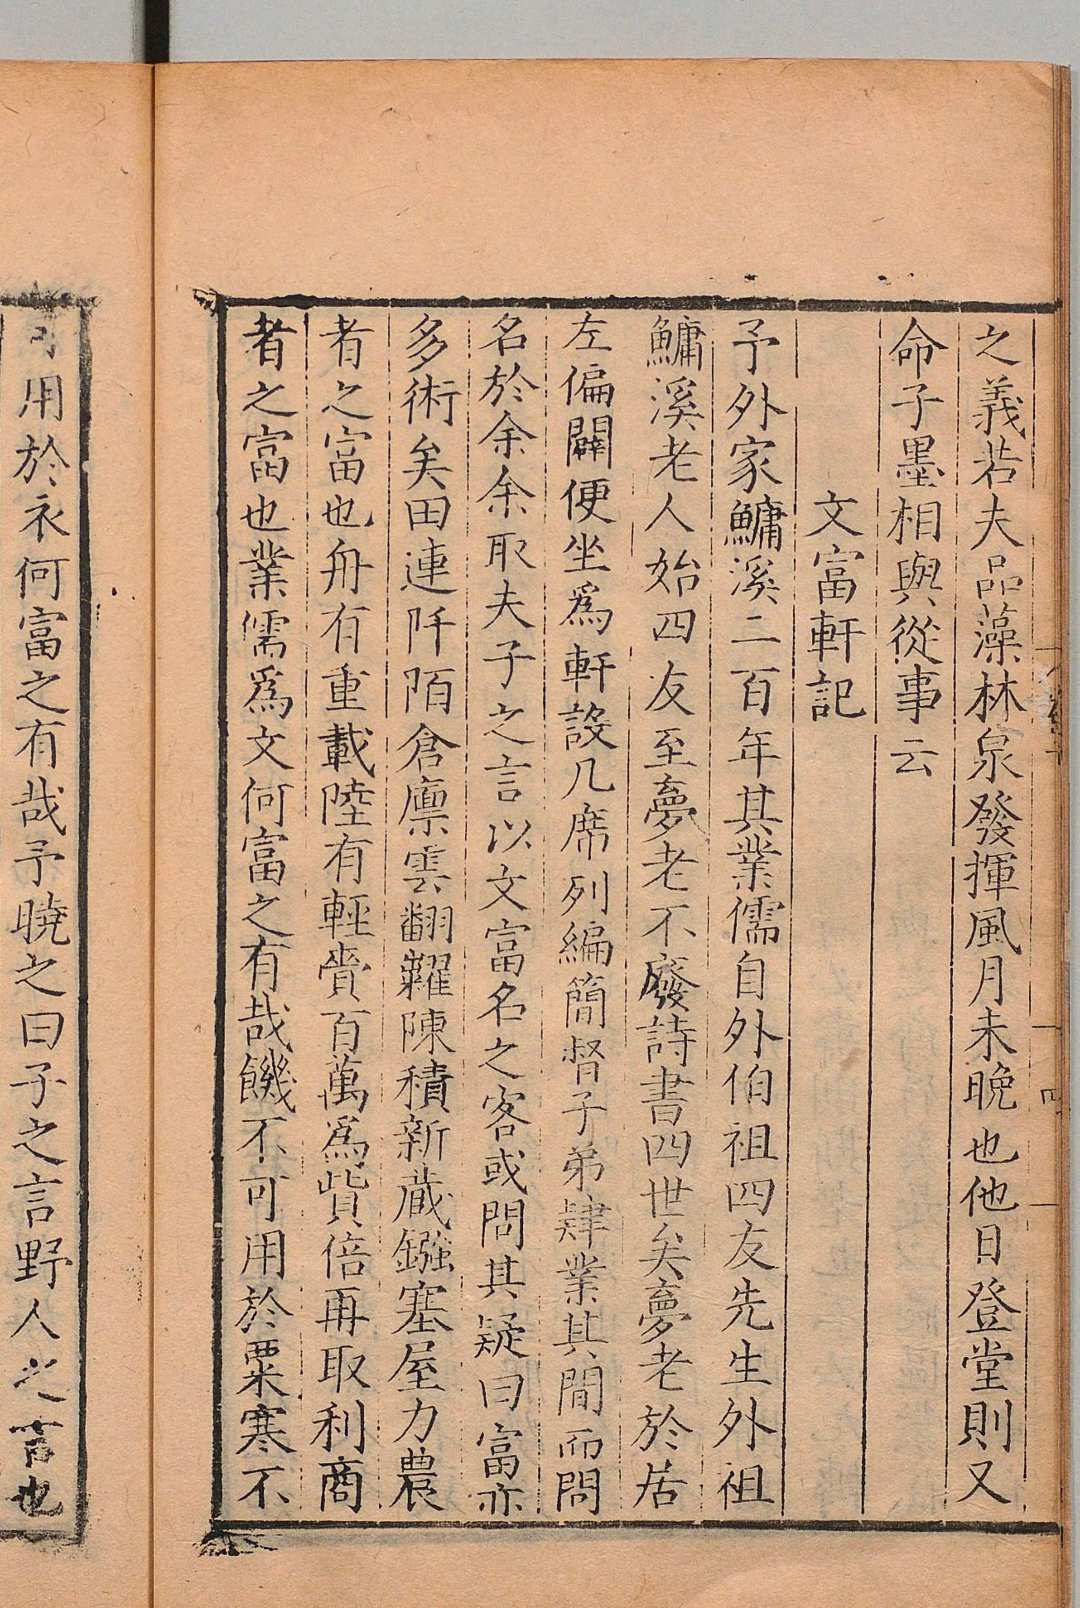 之義若夫品藻林泉發揮風月未晩也他日登堂則又
命子墨相與從事云
文富軒記
予外家鱅溪二百年其業儒自外伯祖四友先生外祖
鱅溪老人始四友至夢老不廢詩書四世矣夢老於居
左偏闢便坐爲軒設几席列編簡督子弟肄業其間而問
名於余余取夫子之言以文富名之客或問其疑曰富亦
多術矣田連阡陌倉廪雲翻糶陳積新藏鏹塞屋力農
者之富也舟有重載陸有輕賷百萬爲貲倍再取利商
者之富也業儒爲文何富之有哉饑不可用於粟寒不
可用於衣何富之有哉予曉之曰子之言野人之言也